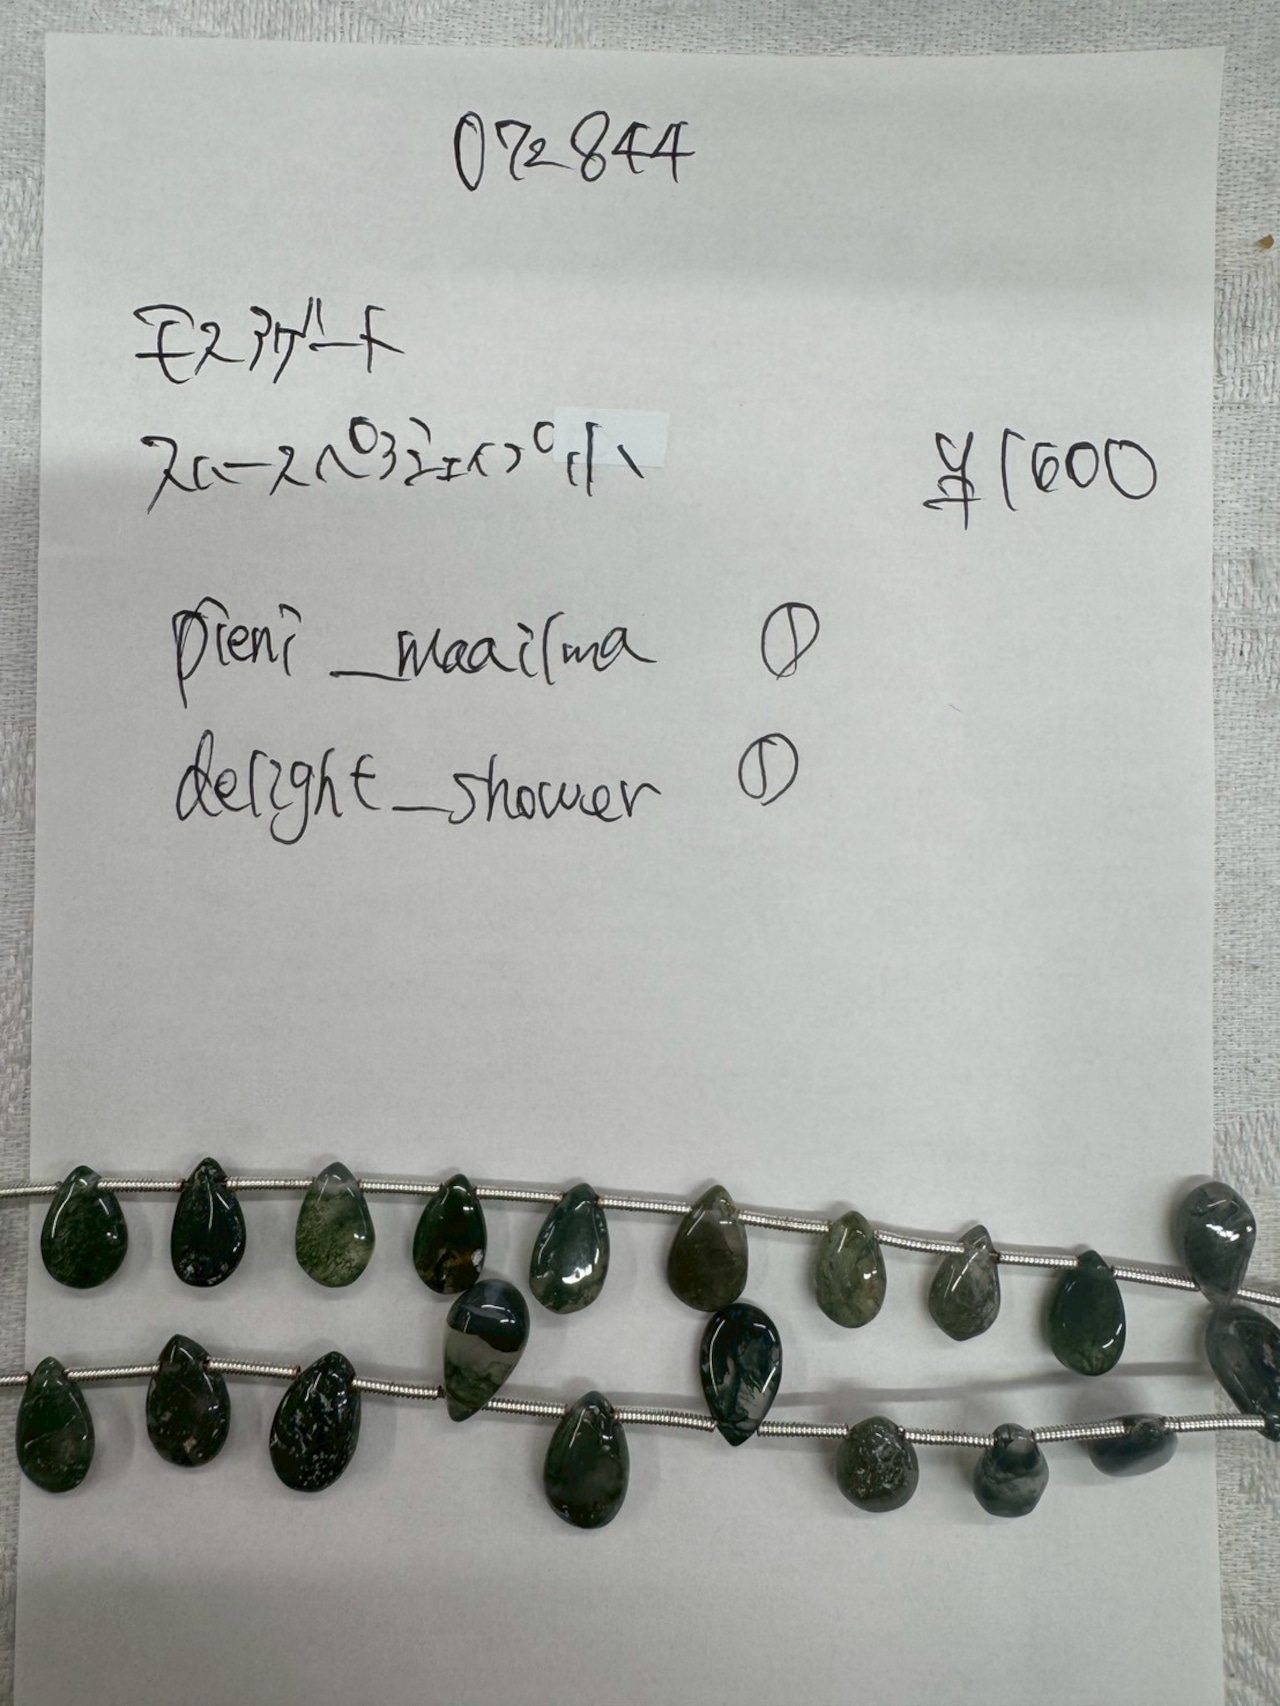 072844
モスアゲート
スムースペアシェイプ 小 ¥1600
pieni_maailma ①
delight_shower ①